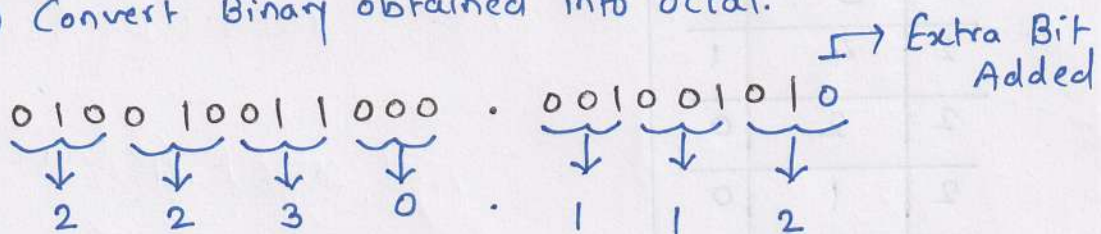 Convert Binary obtained into octal.
→ Extra Bit
Added
0 1 0 0 1 0 0 1 1 0 0 0 . 0 0 1 0 0 1 0 1 0
↓ ↓ ↓ ↓ ↓ ↓ ↓
2 2 3 0 . 1 1 2